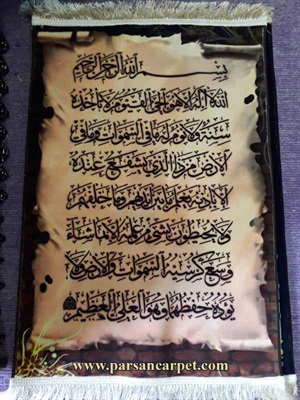 بسم الله الرحمن الرحيم
الله لا اله الا هو الحي القيوم لا تاخذه
سنة ولا نوم له ما في السموات وما في
الارض من ذا الذي يشفع عنده
الا باذنه يعلم ما بين ايديهم وما خلفهم
ولا يحيطون بشيء من علمه الا بما شاء
وسع كرسيه السموات والارض ولا
يوده حفظهما وهو العلي العظيم
www.parsancarpet.com